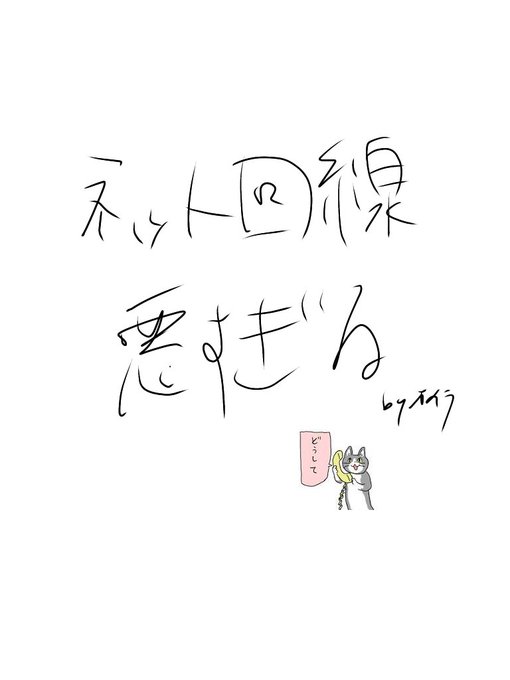 ネット回線
悪すぎる
byオイラ
どうして